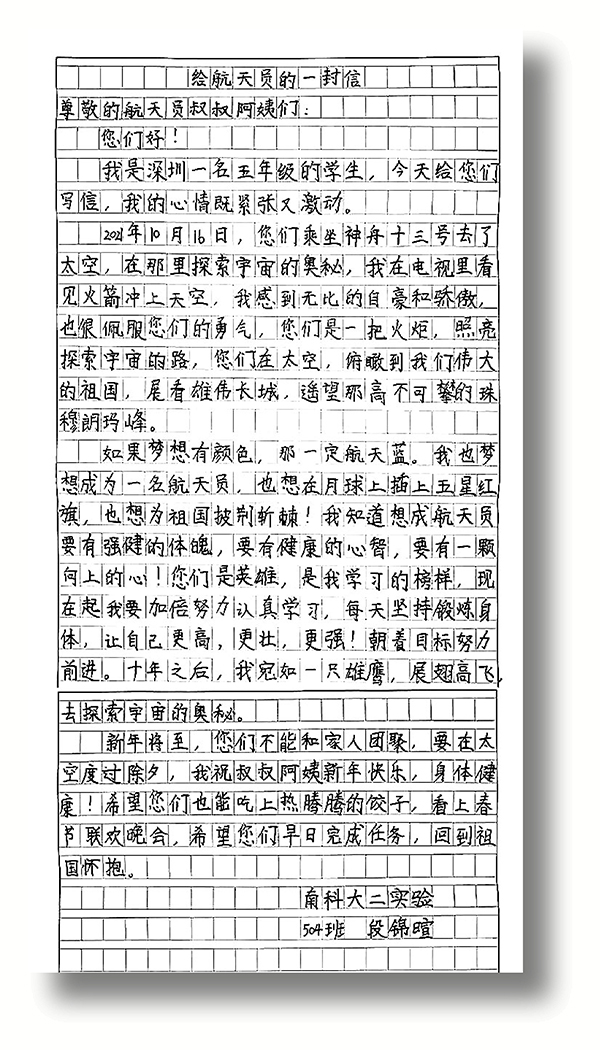 给航天员的一封信
尊敬的航天员叔叔阿姨们：
您们好！
我是深圳一名五年级的学生，今天给您们
写信，我的心情既紧张又激动。
2021年10月16日，您们乘坐神舟十三号去了
太空，在那里探索宇宙的奥秘，我在电视里看
见火箭冲上天空，我感到无比的自豪和骄傲，
也很佩服您们的勇气，您们是一把火炬，照亮
探索宇宙的路，您们在太空，俯瞰到我们伟大
的祖国，尾看雄伟长城，遥望那高不可攀的珠
穆朗玛峰。
如果梦想有颜色，那一定航天蓝。我也梦
想成为一名航天员，也想在月球上插上五星红
旗，也想为祖国披荆斩棘！我知道想成航天员
要有强健的体魄，要有健康的心智，要有一颗
向上的心！您们是英雄，是我学习的榜样，现
在起我要加倍努力认真学习，每天坚持锻炼身
体，让自己更高，更壮，更强！朝着目标努力
前进。十年之后，我宛如一只雄鹰，展翅高飞，
去探索宇宙的奥秘。
新年将至，您们不能和家人团聚，要在太
空度过除夕，我祝叔叔阿姨新年快乐，身体健
康！希望您们也能吃上热腾腾的饺子，看上春
节联欢晚会，希望您们早日完成任务，回到祖
国怀抱。
南科大二实验
504班 段锦暄